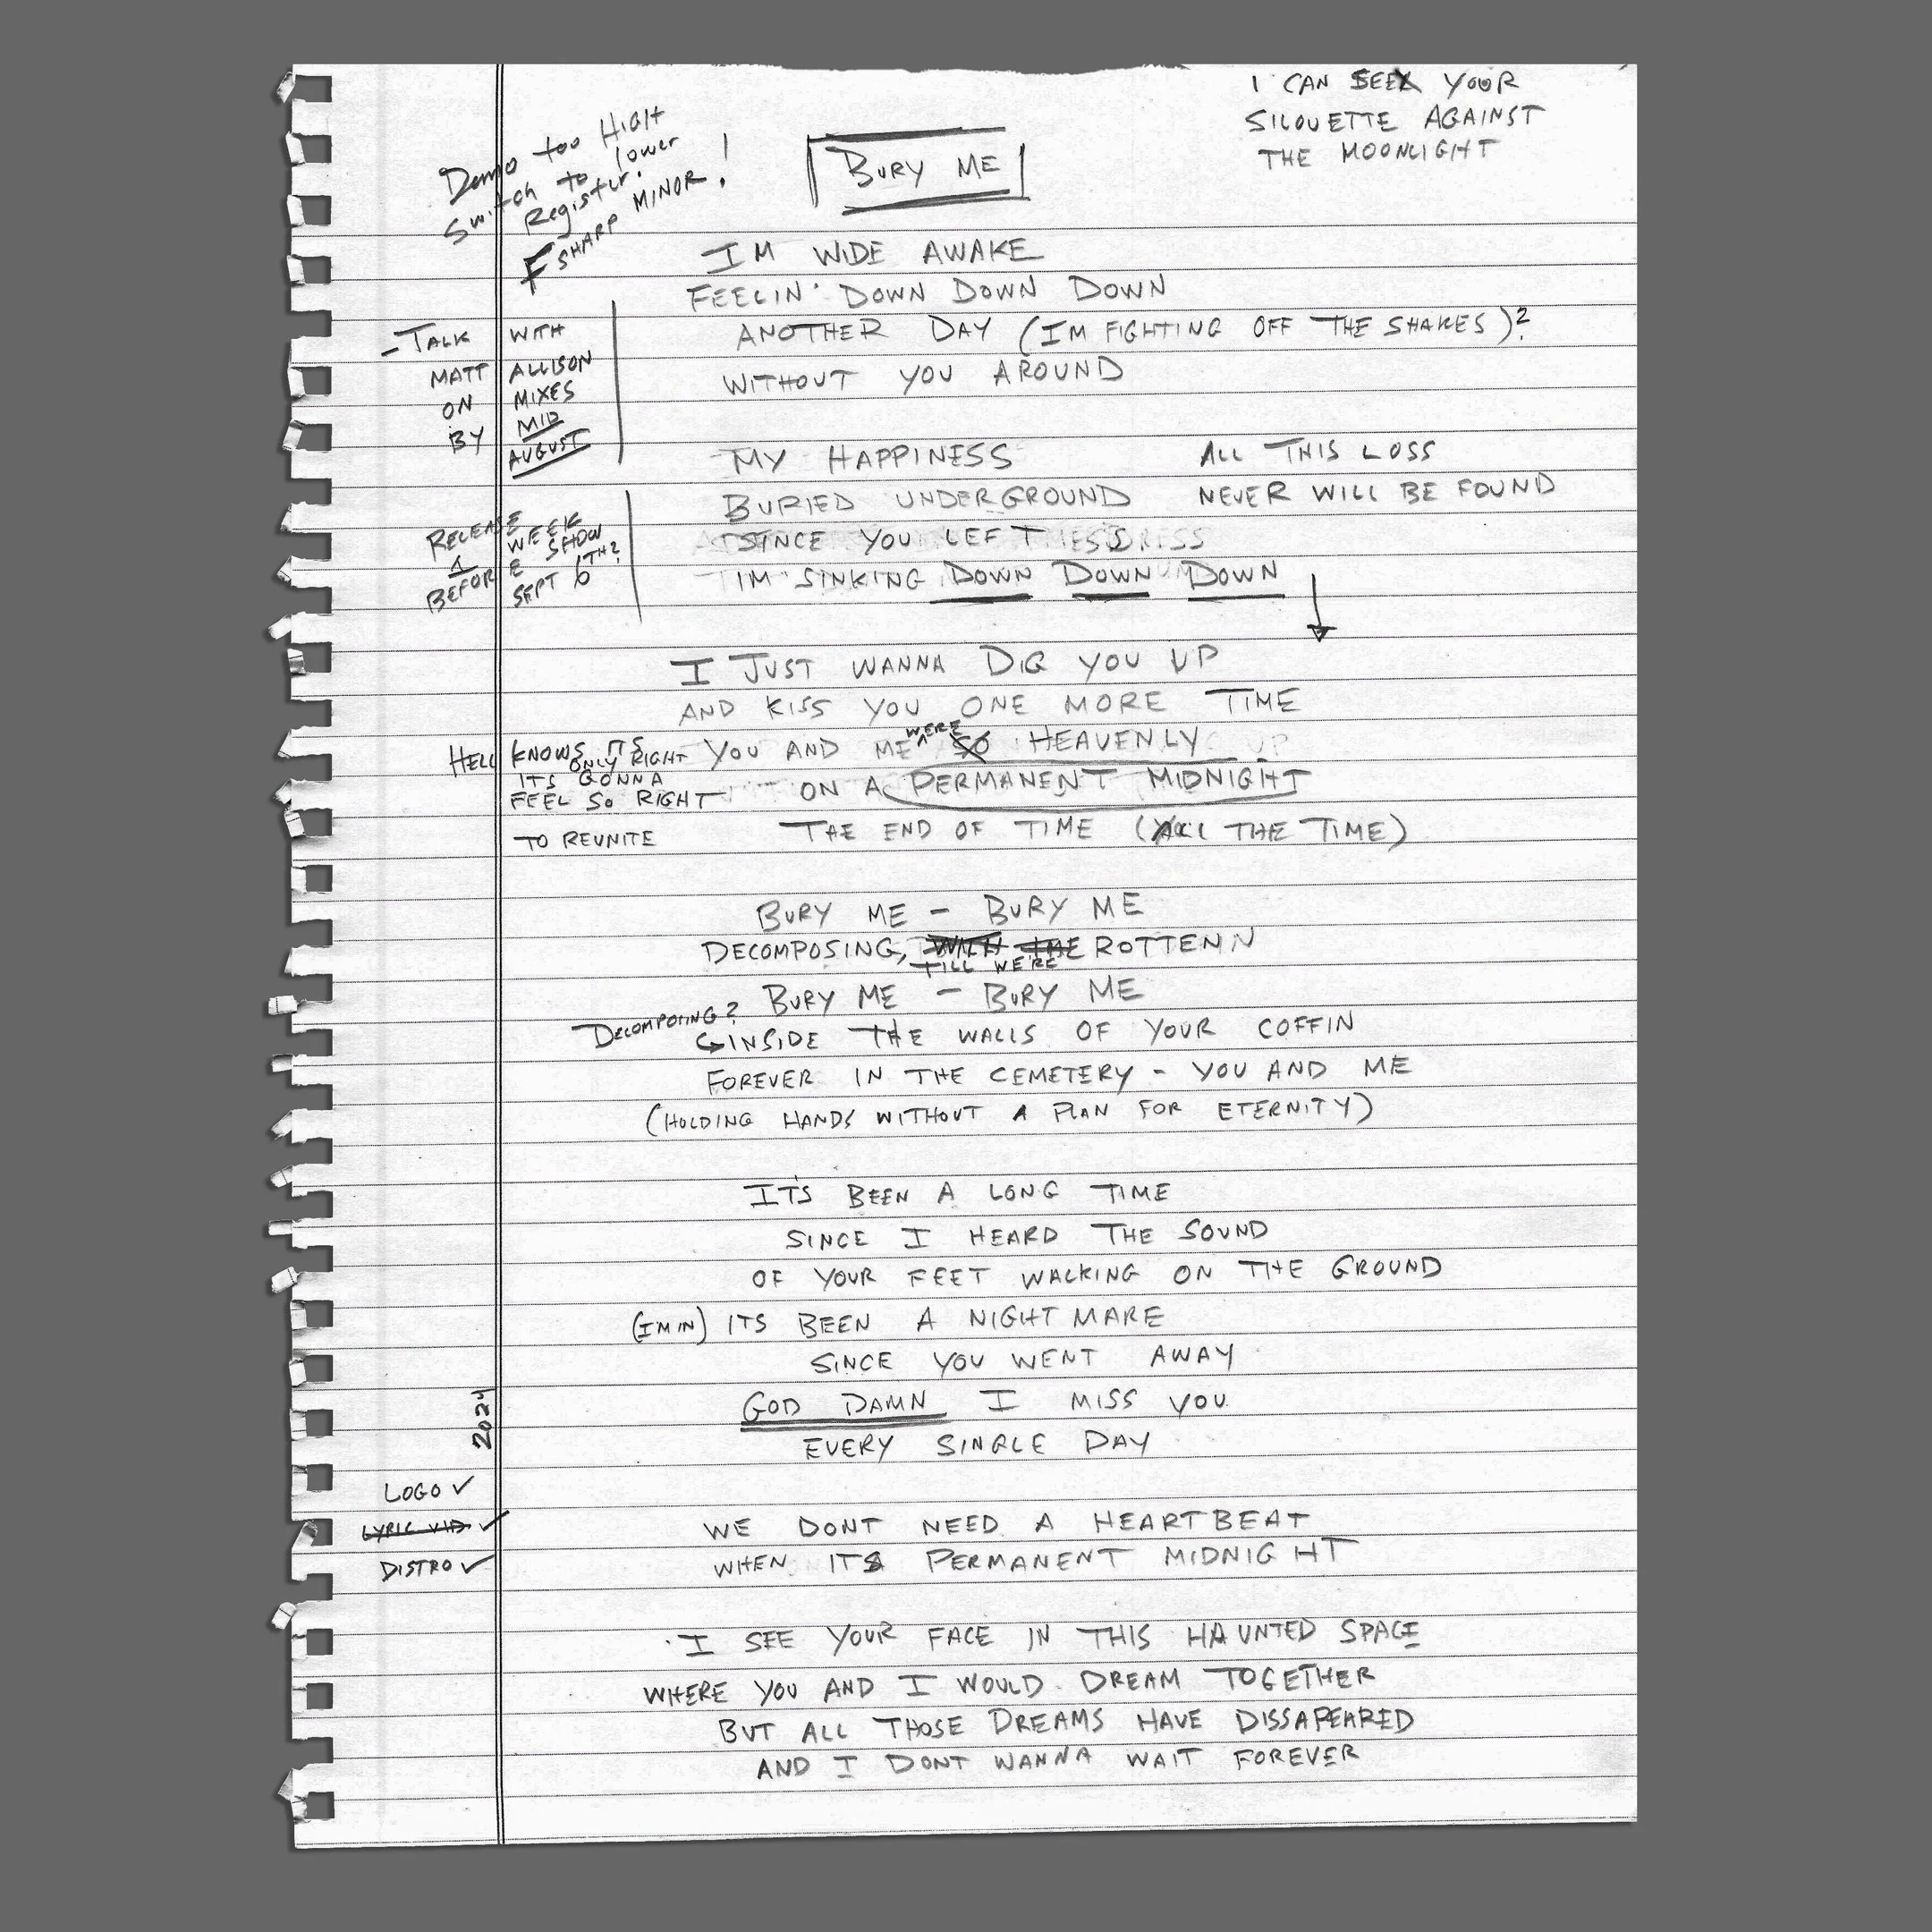 I CAN SEE YOUR
SILOUETTE AGAINST
THE MOONLIGHT
Demo too HIGH
Switch to lower
Register!
F SHARP MINOR!
BURY ME
IM WIDE AWAKE
FEELIN' DOWN DOWN DOWN
ANOTHER DAY (IM FIGHTING OFF THE SHAKES)?
WITHOUT YOU AROUND
- TALK WITH
MATT ALLISON
ON MIXES
BY MID
AUGUST
MY HAPPINESS
BURIED UNDERGROUND
SINCE YOU LEFT
IM SINKING DOWN DOWN DOWN
ALL THIS LOSS
NEVER WILL BE FOUND
RELEASE
1 WEEK
BEFORE SHOW
SEPT 6TH?
I JUST WANNA DIG YOU UP
AND KISS YOU ONE MORE TIME
YOU AND ME WERE SO HEAVENLY
ON A PERMANENT MIDNIGHT
THE END OF TIME (ALL THE TIME)
HELL KNOWS ITS
ONLY RIGHT
ITS GONNA
FEEL SO RIGHT
TO REUNITE
BURY ME - BURY ME
DECOMPOSING, WITH THE ROTTENN
TILL WE'RE
BURY ME - BURY ME
DECOMPOSING?
INSIDE THE WALLS OF YOUR COFFIN
FOREVER IN THE CEMETERY - YOU AND ME
(HOLDING HANDS WITHOUT A PLAN FOR ETERNITY)
IT'S BEEN A LONG TIME
SINCE I HEARD THE SOUND
OF YOUR FEET WALKING ON THE GROUND
(IM IN) ITS BEEN A NIGHTMARE
SINCE YOU WENT AWAY
GOD DAMN I MISS YOU
EVERY SINGLE DAY
2024
LOGO ✓
LYRIC VID ✓
DISTRO ✓
WE DONT NEED A HEARTBEAT
WHEN ITS PERMANENT MIDNIGHT
I SEE YOUR FACE IN THIS HAUNTED SPACE
WHERE YOU AND I WOULD DREAM TOGETHER
BUT ALL THOSE DREAMS HAVE DISSAPEARED
AND I DONT WANNA WAIT FOREVER